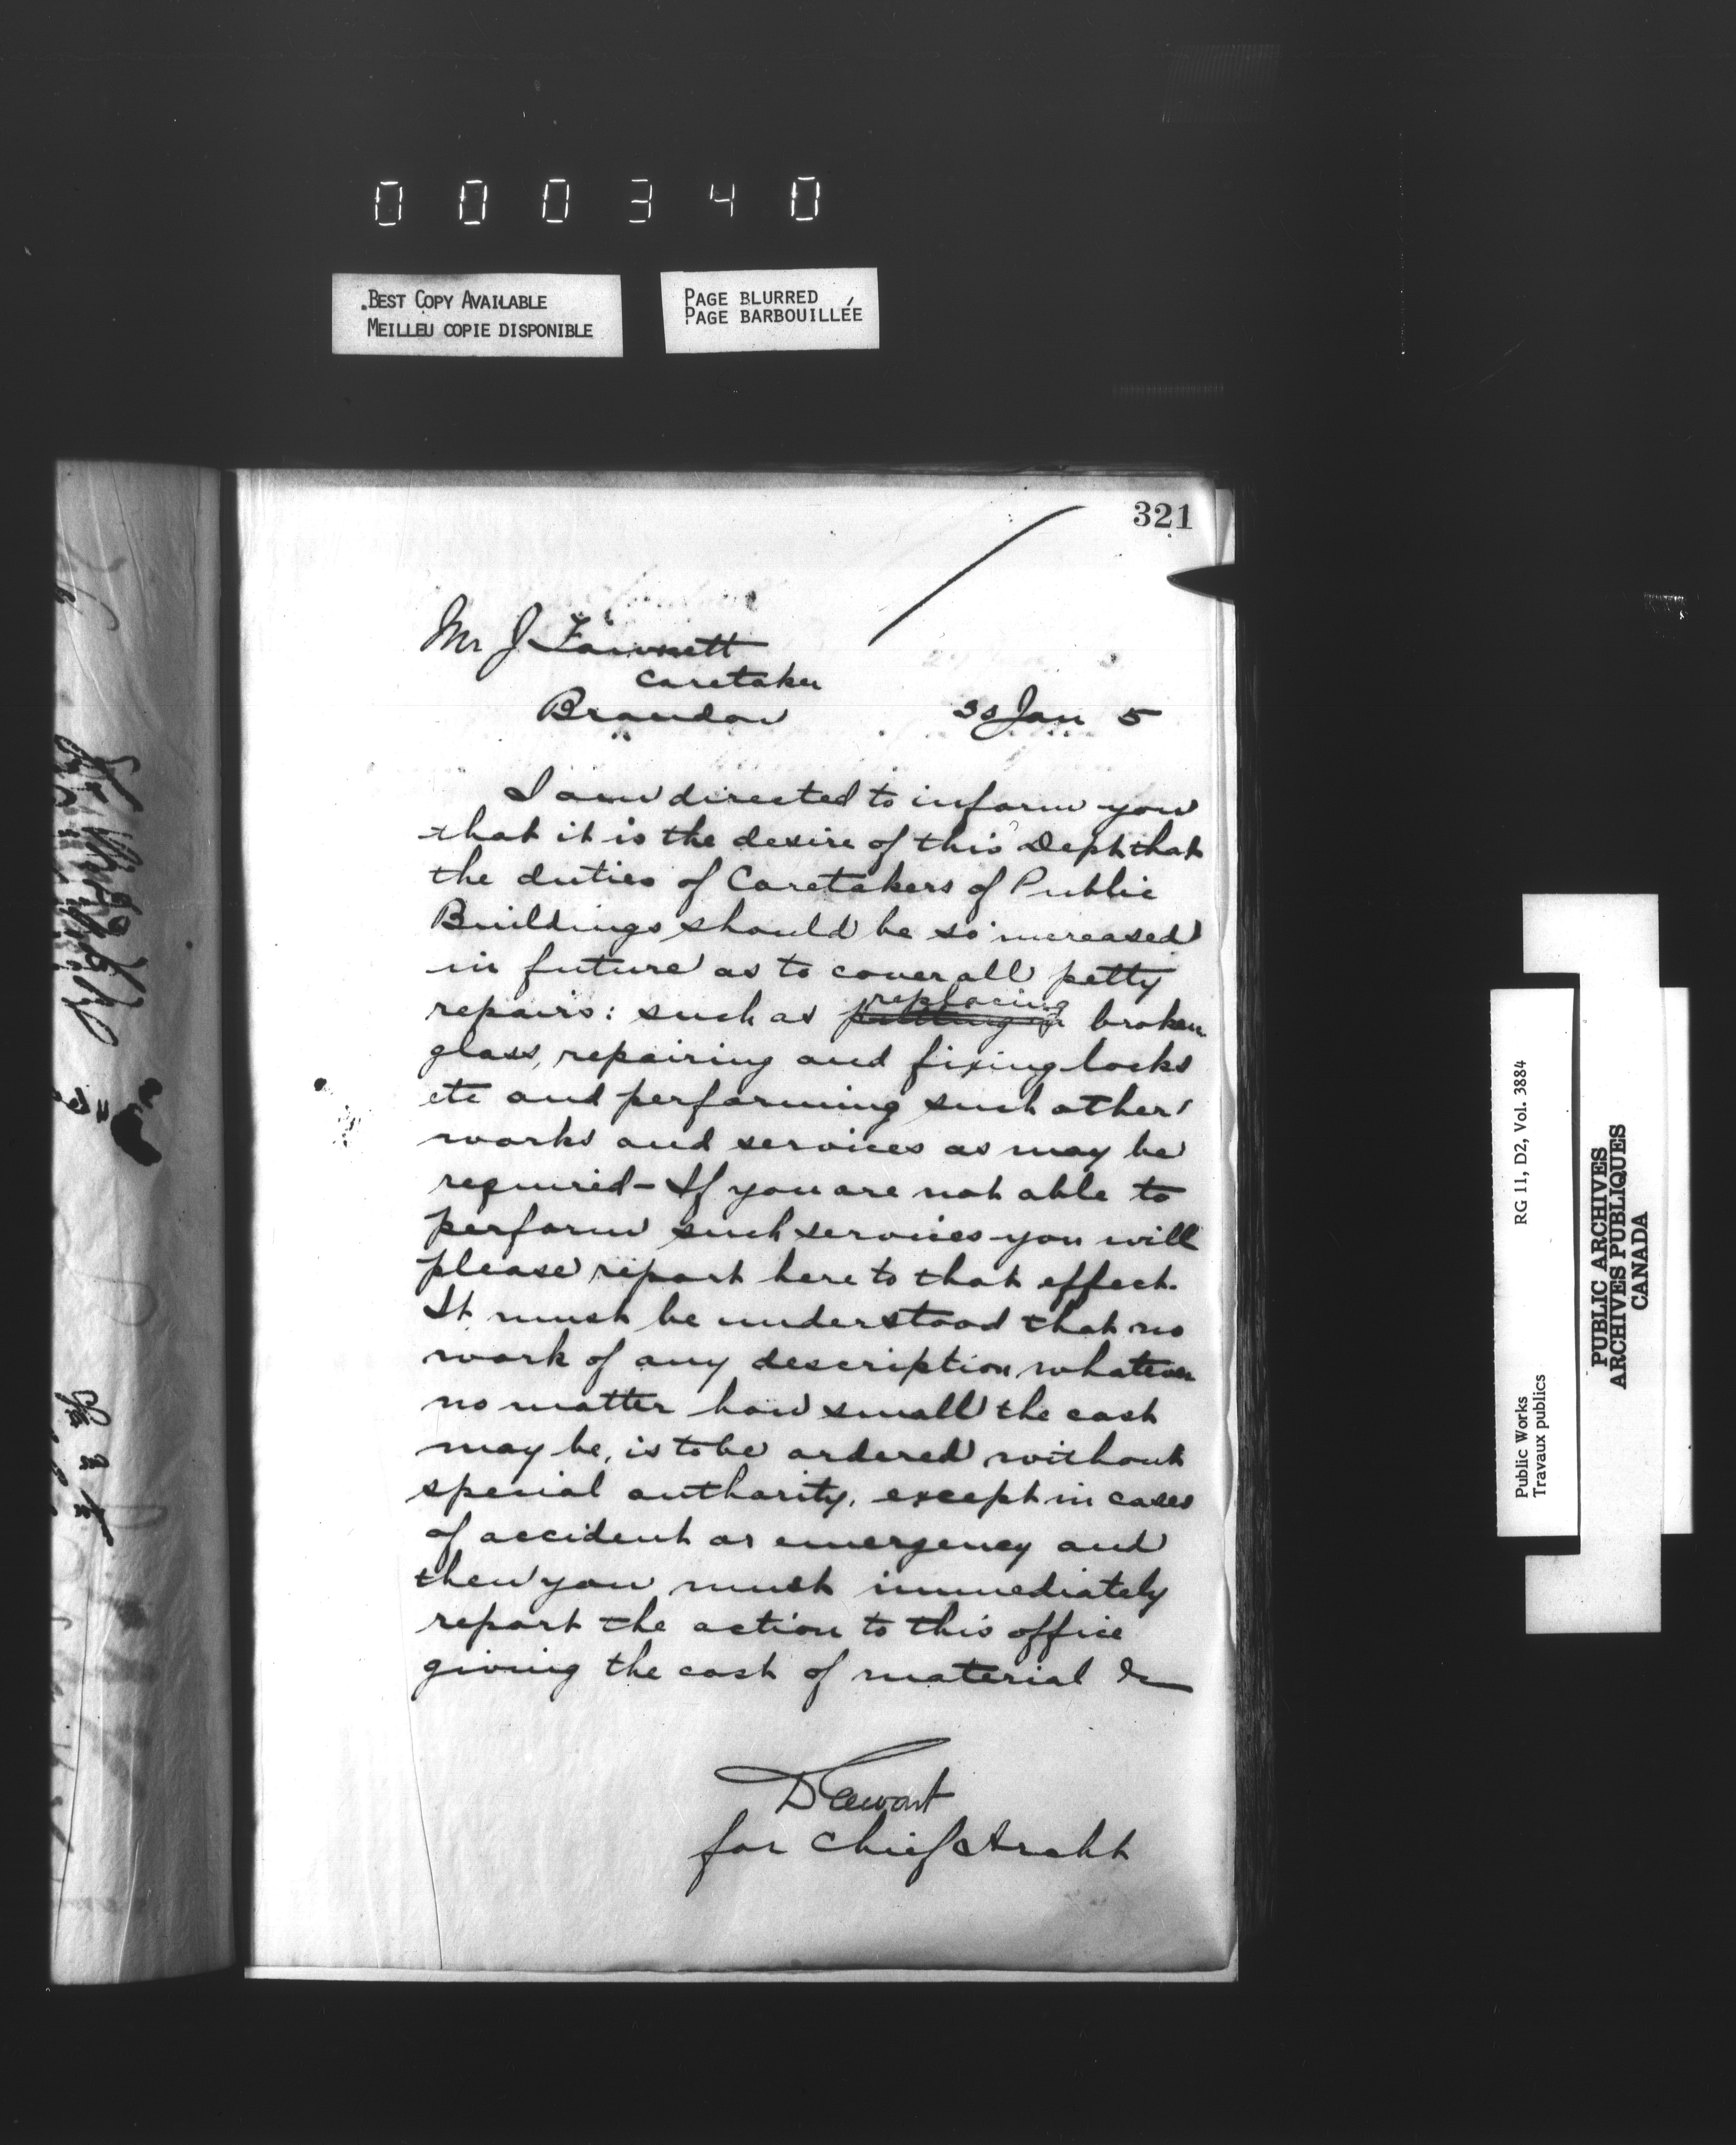 000340
BEST COPY AVAILABLE
MEILLEU COPIE DISPONIBLE
PAGE BLURRED
PAGE BARBOUILLÉE
321
Mr J
Caretaker
Brandon 30 Jan 5
I am directed to inform you
that it is the desire of this Dept that
the duties of Caretakers of Public
Buildings should be so increased
in future as to cover all petty
repairs: such as putting in replacing broken
glass, repairing and fixing locks
etc and performing such other
works and services as may be
required - If you are not able to
perform such services you will
please report here to that effect.
It must be understood that no
work of any description whatever
no matter how small the cost
may be, is to be ordered without
special authority, except in cases
of accident or emergency and
then you must immediately
report the action to this office
giving the cost of material &c
D Ewart
for Chief Archt
Public Works
Travaux publics
RG 11, D2, Vol. 3884
PUBLIC ARCHIVES
ARCHIVES PUBLIQUES
CANADA